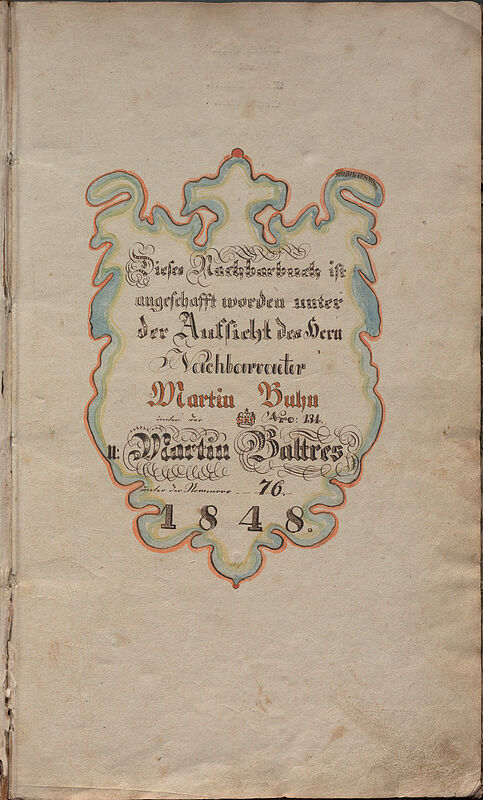 Dieses Nachbarbuch ist
angeschafft worden unter
der Aufsicht des Hern
Nachbarvater
Martin Buhn
unter der Nro: 134.
u: Martin Baltres
unter der Nommero 76.
1848.